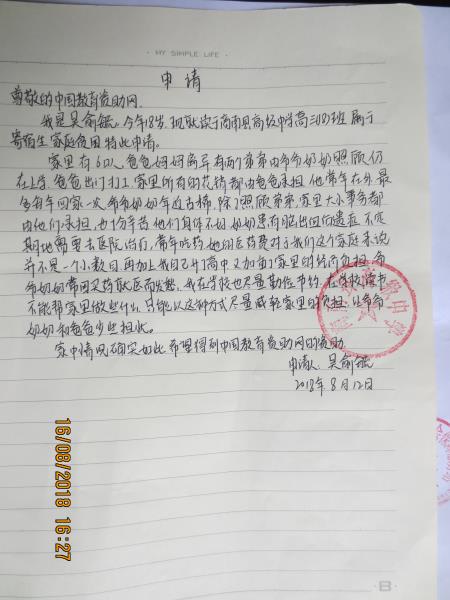 · MY SIMPLE LIFE ·
申请
尊敬的中国教育资助网。
我是吴俞毓。今年18岁,现就读于商南县高级中学高三(18)班 属于
寄宿生 家庭贫困 特此申请。
家里有6口人,爸爸妈妈离异 有两个弟弟由爷爷奶奶照顾,仍
在上学。爸爸出门打工,家里所有的花销都由爸爸承担,他常年在外,最
多每年回家一次,爷爷奶奶年近古稀,除了照顾弟弟,家里大小事务都
由他们承担,十分辛苦,他们身体不好,奶奶患有脑出血后遗症,不定
期地需要去医院治疗,常年吃药,她的医药费对于我们这个家庭来说
并不是一个小数目,再加上我自己升高中又加重了家里的经济负担,爷
爷奶奶常因买药取医而发愁,我在学校也尽量勤俭节约,在学校读书
不能帮家里做些什么,只能以这种方式尽量减轻家里的负担,让爷爷
奶奶和爸爸少些担忧。
家中情况确实如此,希望得到中国教育资助网的资助。
申请人:吴俞毓
2018年8月12日
16/08/2018 16:27
B